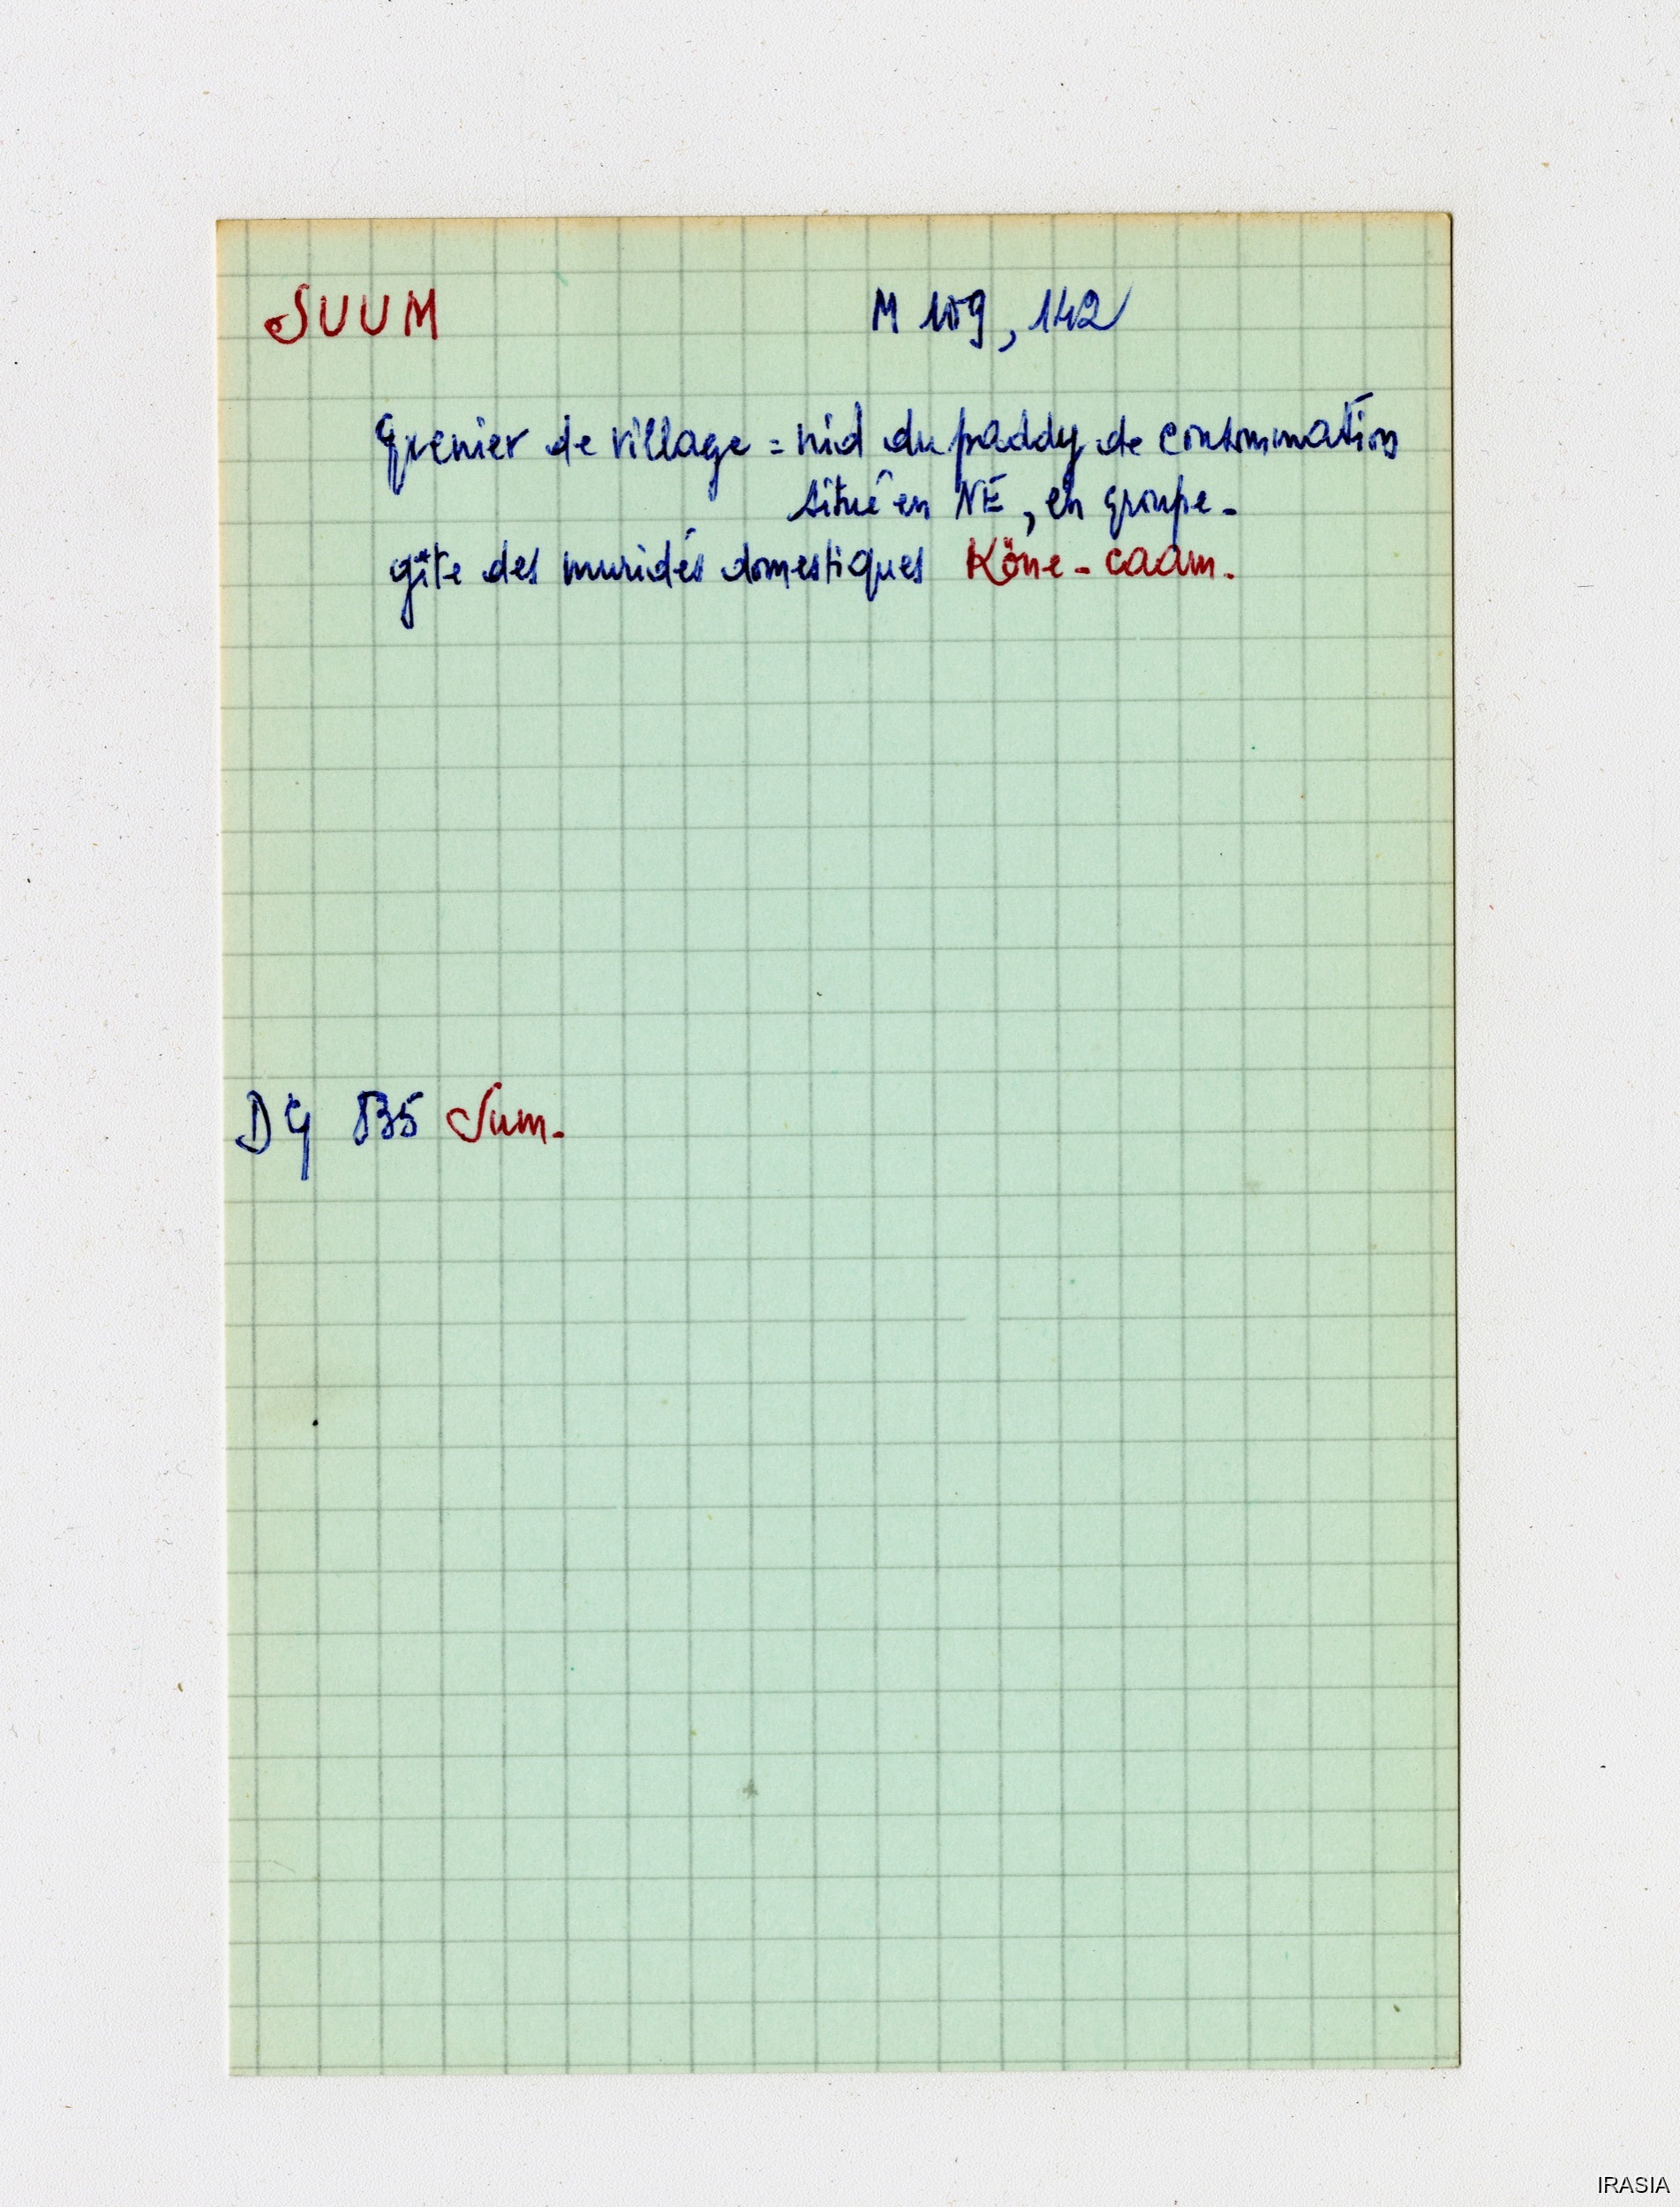 SUUM M 109, 142
Grenier de village = nid du paddy de consommation
situé en NE, en groupe.
gîte des muridés domestiques Köne-caam.
DG 835 Sum.
IRASIA